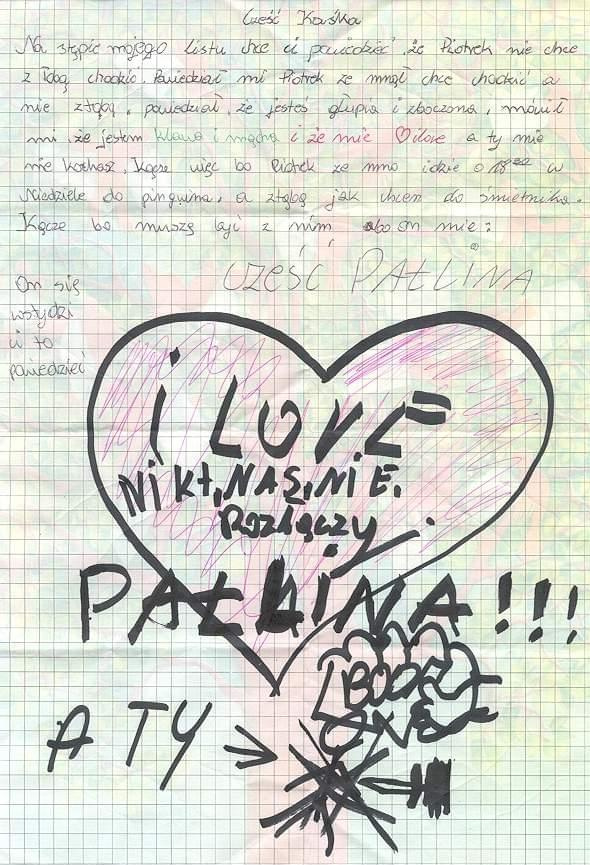 Cześć Kaśka
Na stępie mojego listu chce ci powiedzieć, że Piotrek nie chce
z Tobą chodzić. Powiedział mi Piotrek ze mną chce chodzić a
nie ztąbą, powiedział, że jesteś głupia i zboczona, mówił
mi, że jestem klawa i mądra i że mie ♡ilove a ty mie
nie kochasz. Kącze więc bo Piotrek ze mno idzie o 18⁰⁰ w
Niedziele do pingwina, a ztąbą jak chcem do śmietnika.
Kącze bo muszę lązi z nim abo on mie:
CZEŚĆ PAŁLINA
On się
wstydzi
ci to
powiedzieć
i LOVE
NiKt, NAS, NiE.
ROZŁĄCZY
PAŁLiNA!!!
A TY